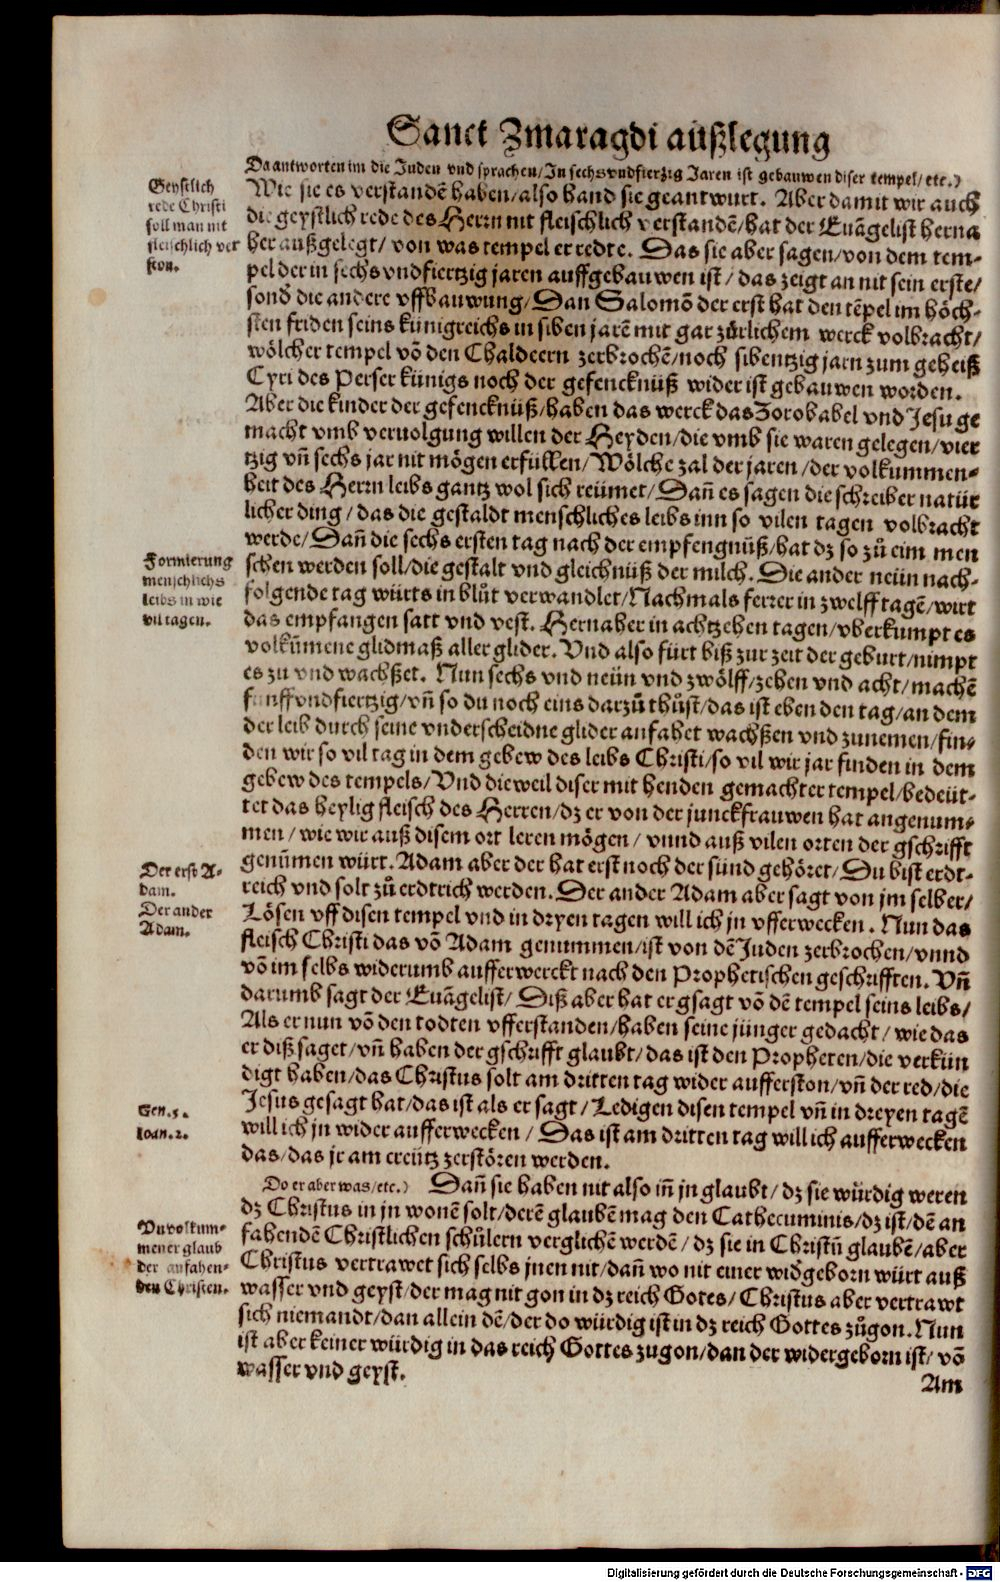 Sanct Zmaragdi außlegung
Da antworten im die Juden vnd sprachen/In sechs vndfierzig Jaren ist gebauwen diser tempel/etc.)
Geystlich
rede Christi
soll man nit
fleischlich ver
ston.
Wie sie es verstandē haben/also hand sie geantwurt. Aber damit wir auch
die geystlich rede des Herrn nit fleischlich verstandē/hat der Euāgelist herna
her außgelegt/von was tempel er redte. Das sie aber sagen/von dem tem-
pel der in sechs vndfiertzig jaren auffgebauwen ist/das zeigt an nit sein erste/
sond̄ die andere vffbauwung/Dan Salomō der erst hat den tēpel im höch-
sten friden seins künigreichs in siben jarē mit gar zůrlichem werck volbracht/
wölcher tempel vō den Chaldeern zerbrochē/noch sibentzig jarn zum geheiß
Cyri des Perser künigs noch der gefencknüß wider ist gebauwen worden.
Aber die kinder der gefencknüß/haben das werck das Zorobabel vnd Jesu ge
macht vmb veruolgung willen der Heyden/die vmb sie waren gelegen/vier
tzig vñ sechs jar nit mögen erfüllen/Wölche zal der jaren/der volkummen-
heit des Herrn leibs gantz wol sich reümet/Dañ es sagen die schreiber natür
licher ding/das die gestaldt menschliches leibs inn so vilen tagen volbracht
werde/Dañ die sechs ersten tag nach der empfengnüß/hat dz so zů eim men
Formierung
menschlichs
leibs in wie
vil tagen.
schen werden soll/die gestalt vnd gleichnüß der milch. Die ander neün nach-
folgende tag würts in blůt verwandlet/Nachmals ferrer in zwelff tagē/wirt
das empfangen satt vnd vest. Hernaher in achtzehen tagen/vberkumpt es
volkūmene glidmaß aller glider. Vnd also fürt biß zur zeit der geburt/nimpt
es zu vnd wachßet. Nun sechs vnd neün vnd zwölff/zehen vnd acht/machē
fünffvndfiertzig/vñ so du noch eins darzů thůst/das ist eben den tag/an dem
der leib durch seine vnderscheidne glider anfahet wachßen vnd zunemen/fin-
den wir so vil tag in dem gebew des leibs Christi/so vil wir jar finden in dem
gebew des tempels/Vnd dieweil diser mit henden gemachter tempel/bedeüt-
tet das heylig fleisch des Herren/dz er von der junckfrauwen hat angenum-
men/wie wir auß disem ort leren mögen/vnnd auß vilen orten der gschrifft
genūmen würt. Adam aber der hat erst noch der sünd gehöret/Du bist erdt-
Der erst A-
dam.
Der ander
Adam.
reich vnd solt zů erdtrich werden. Der ander Adam aber sagt von jm selber/
Lösen vff disen tempel vnd in dryen tagen will ich jn vfferwecken. Nun das
fleisch Christi das vō Adam genummen/ist von dē Juden zerbrochen/vnnd
vō im selbs widerumb aufferwerckt nach den Prophetischen geschrifften. Vñ
darumb sagt der Euāgelist/Diß aber hat er gsagt vō dē tempel seins leibs/
Als er nun vō den todten vfferstanden/haben seine jünger gedacht/wie das
er diß saget/vñ haben der gschrifft glaubt/das ist den Propheten/die verkün
digt haben/das Christus solt am dritten tag wider aufferston/vñ der red/die
Gen.5.
Ioan.2.
Jesus gesagt hat/das ist als er sagt/Ledigen disen tempel vñ in dreyen tagē
will ich jn wider aufferwecken/Das ist am dritten tag will ich aufferwecken
das/das jr am creütz zerstören werden.
Do er aber was/etc.) Dañ sie haben nit also iñ jn glaubt/dz sie würdig weren
dz Christus in jn wonē solt/derē glaubē mag den Cathecuminis/dz ist/dē an
Vnvolkum-
mener glaub
der anfahen-
den Christen.
fahendē Christlichen schůlern verglichē werdē/dz sie in Christū glaubē/aber
Christus vertrawet sich selbs jnen nit/dañ wo nit einer wid̄geborn würt auß
wasser vnd geyst/der mag nit gon in dz reich Gotes/Christus aber vertrawt
sich niemandt/dan allein dē/der do würdig ist in dz reich Gottes zůgon. Nun
ist aber keiner würdig in das reich Gottes zugon/dan der widergeborn ist/vō
wasser vnd geyst.
Am
Digitalisierung gefördert durch die Deutsche Forschungsgemeinschaft - DFG